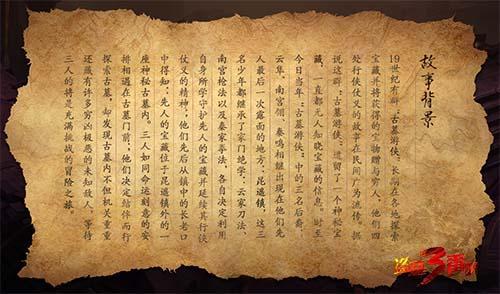 故事背景
19世纪有群“古墓游侠”长期在各地探索
宝藏并将获得的宝物赠与穷人，他们四
处行侠仗义的故事在民间广为流传，据
说这群“古墓游侠”遗留了一个神秘宝
藏，一直都无人知晓宝藏的信息，时至
今日当年“古墓游侠”中的三名后裔，
云隼、南宫翎、秦鸣相继出现在他们先
人最后一次露面的地方：昆遁镇，这三
名少年都继承了家门绝学：云家刀法、
南宫枪法以及秦家拳法，各自决定利用
自身所学守护先人的宝藏并延续其行侠
仗义的精神，他们先后从镇中的长老口
中得知，先人的宝藏位于昆遁镇外的一
座神秘古墓内，三人如同命运刻意的安
排相遇在古墓门前，他们决定结伴而行
探索古墓，却发现古墓内不但机关重重
还藏有许多穷凶极恶的未知敌人，等待
三人的将是充满挑战的冒险之旅。
3